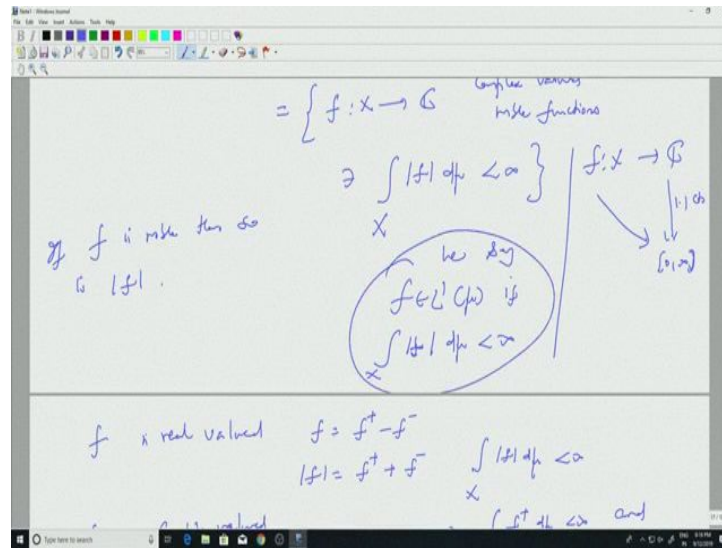 Note1 - Windows Journal
File Edit View Insert Actions Tools Help
complex valued
= { f : X → ℂ mble functions
∋ ∫_X |f| dμ < ∞ }
f : X → ℂ
|·| cts
[0, ∞)
If f is mble then so
is |f|.
We say
f ∈ L¹(μ) if
∫_X |f| dμ < ∞
f is real valued f = f⁺ - f⁻
|f| = f⁺ + f⁻ ∫_X |f| dμ < ∞
valued ∫ f⁺ dμ < ∞ and
Type here to search
9:18 PM
9/12/2019